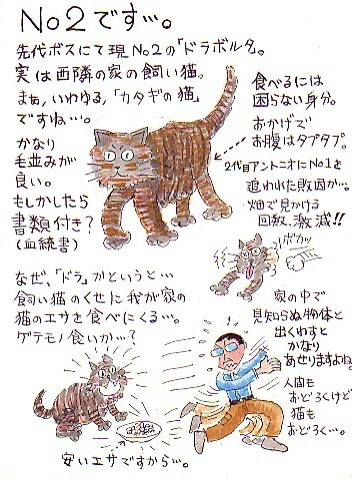 No2です…。
先代ボスにて現No2の「ドラボルタ。
実は西隣の家の飼い猫。
まぁ、いわゆる、「カタギの猫」
ですね…。
かなり
毛並みが
良い。
もしかしたら
書類付き？
(血統書)
食べるには
困らない身分。
おかげで
お腹はタプタプ。
2代目アントニオにNo1を
追われた敗因か…。
畑で見かける
回数、激減!!
ボカッ
なぜ、「ドラ」かというと…
飼い猫のくせに我が家の
猫のエサを食べにくる…。
ゲテモノ食いか…？
安いエサですから…。
家の中で
見知らぬ物体と
出くわすと
かなり
あせりますよね。
人間も
おどろくけど
猫も
おどろく…。